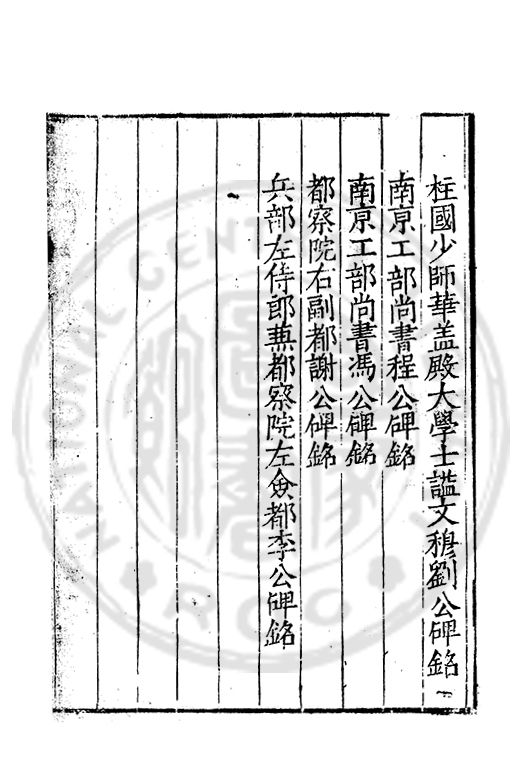 柱國少師華盖殿大學士謚文穆劉公碑銘
南京工部尚書程公碑銘
南京工部尚書馮公碑銘
都察院右副都謝公碑銘
兵部左侍郎兼都察院左僉都李公碑銘
NATIONAL CENTRAL